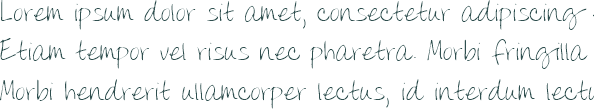 Lorem ipsum dolor sit amet, consectetur adipiscing
Etiam tempor vel risus nec pharetra. Morbi fringilla
Morbi hendrerit ullamcorper lectus, id interdum